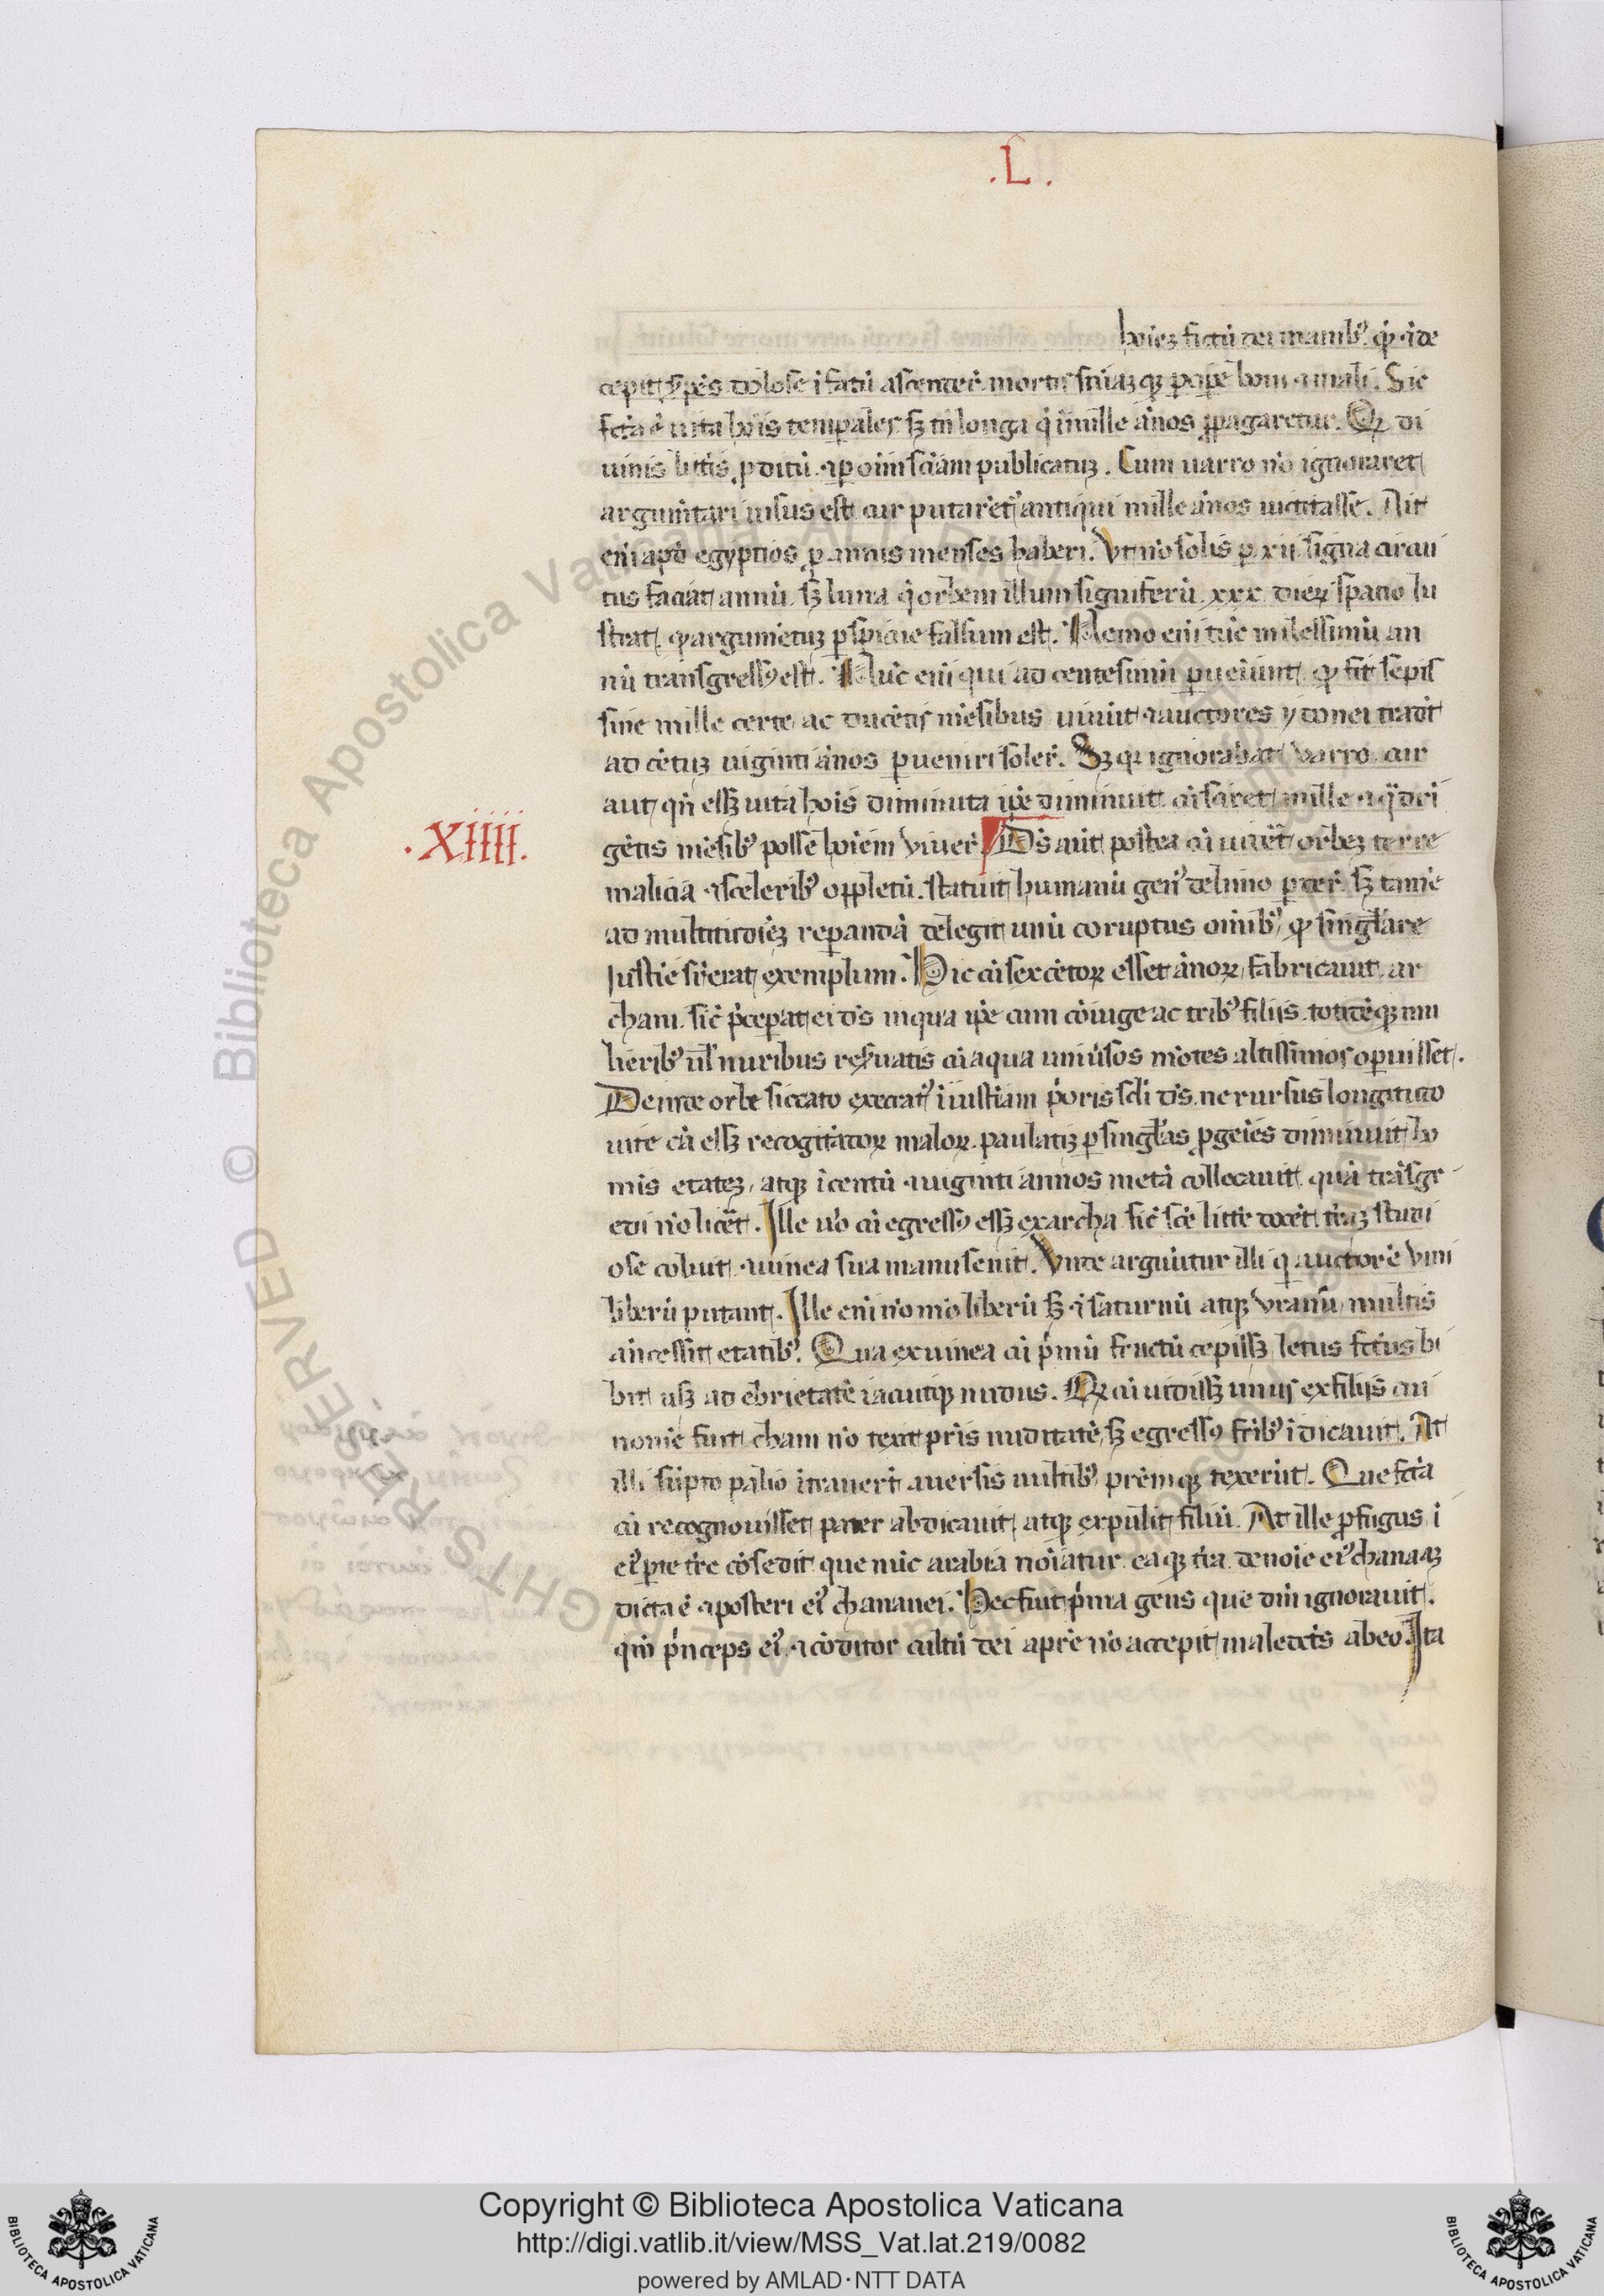 .L.
hoiez fictū dei manib⁹. qđ ide
cepit s̄pēs dolose ifātū ascender̄ mortis sniāz qz ppē boni ⁊ mali. Sic
fcta ē uita hoīs temporales sz tn̄ longa q̄ i mille ānos ꝓpagaretur. Qz di
uinis litt̄is ꝓditū ⁊ ꝑ oīm sciām publicatuz. Cum uarro nō ignoraret
argum̄tari uisus est cur putarēt⁹ antiqui mille ānos uictitasse. Ait
eni apd̄ egyptios ꝓ annis menses haberi. Vt nō solis ꝑ xii signa circui
tus faciāt annū. sz luna q̄ orbem illum signiferū. xxx. dieꝝ spatio lu
strat. qđ argumētuz ꝑspicue falsum est. Nemo eni tūc milessimū an
nū transgress⁹ est. Nūc eni qui ad centesimū ꝑueiunt. qđ fit sepis
sīe mille certe ac ducētis mēsibus uiuūt ⁊ auctores ydonei tradūt
ad cētuz uiginti ānos ꝑueniri soler̄. Sz qz ignorabat varro. cur
aut qn̄ essz uita hoīs diminuta ip̄e diminuit. cū sciret mille ⁊ q̄dri
gētis mēsib⁹ posse hoiēm viuer̄. Ds̄ aūt postea cū uidēt orbez terre
malicia ⁊ sceleribꝰ oppletū. statuit humanū gen⁹ deluuio ꝑder̄. sz tamē
ad multitudiēz reperandā delegit unū coruptus oīnib⁹, qđ singlāre
Justicie suꝑerat exemplum. Hic cū sexcētoꝝ esset ānoꝝ. fabricauit ar
cham. sic̄ p̄ceperat ei ds̄ inqua ip̄e cum cōiuge ac trib⁹ filiis. totidēqz mu
lierib⁹ ul̄ nuribus reseruatis cū aqua uniūsos mōtes altissimos operuisset.
Deinde orbe siccato execrat⁹ iiustiam p̄oris scli ds̄. ne rursus longitudo
uite cā essz recogitādoꝝ maloꝝ. paulatiz ꝑ singlās ꝓgeīes diminuit ho
mis etatez, atqz i centū ⁊ uiginti annos metā collocauit. quā trāsgr
edi nō licēt. Ille uo cū egress⁹ essz ex archa sic̄ scē litt̄e docēt t̄raz studi
ose coluit. ⁊ uinea sua manu seuit. Vnde arguūtur illi q auctorē vini
liberū putant. Ille eni nō mō liberū sz ⁊ saturnū atqz vranū multis
ātecessit etatib⁹. Qua ex uinea cū p̄mū fructū cepissz letus fctus bi
bit usz ad ebrietatē iacuitqz nudus. Qz cū uidissz unus ex filiis cui
nomē fuit cham nō texit pr̄is nuditatē, sz egress⁹ frib⁹ idicauit. At
illi sūpto palio itrauer̄t auersis uultib⁹ prēmqz texerūt. Que fcta
cū recognouisset pater abdicauit, atqz expulit filiū. At ille ꝓfugus i
ei⁹ ꝑte t̄re cōsedit que nūc arabia noīatur. eaqz t̄ra de noīe ei⁹ chanaaz
dicta ē ⁊ posteri ei⁹ chananei. Hec fuit p̄ma gens que dm̄ ignorauit.
qm̄ p̄nceps ei⁹ ⁊ cōditor cultū dei a prē nō accepit maledcts̄ ab eo. Ita
.XIIII.
© Biblioteca Apostolica Vaticana
ALL RIGHTS RESERVED
Copyright © Biblioteca Apostolica Vaticana
http://digi.vatlib.it/view/MSS_Vat.lat.219/0082
powered by AMLAD·NTT DATA
BIBLIOTECA APOSTOLICA VATICANA
BIBLIOTECA APOSTOLICA VATICANA